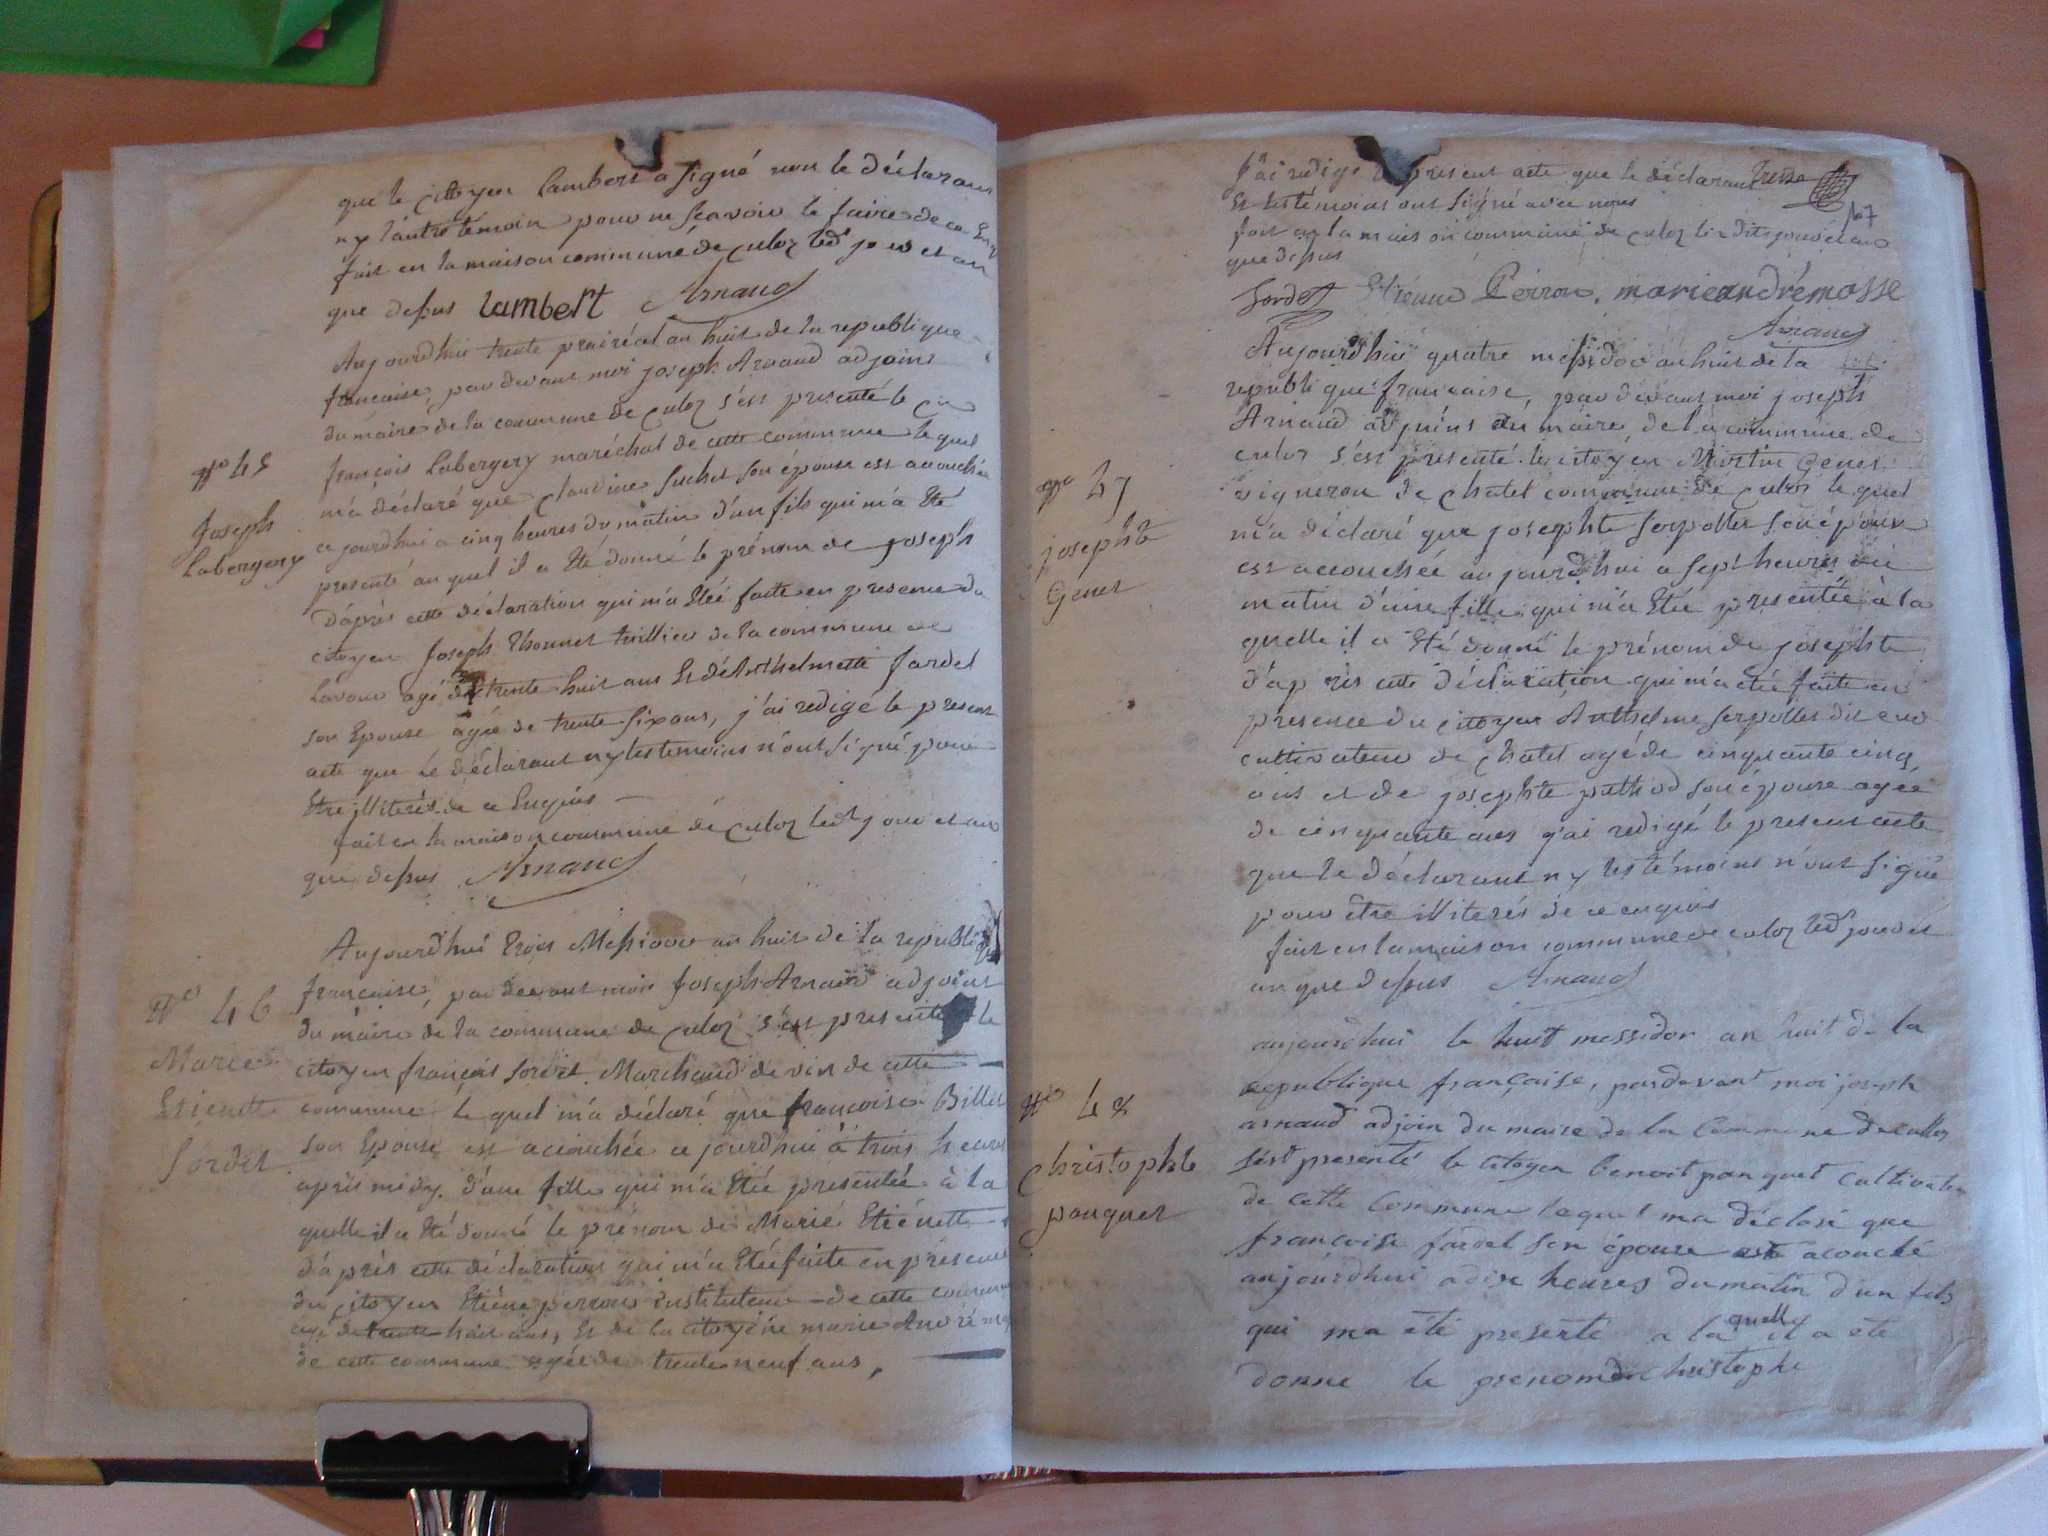 que le citoyen lambert a signé non le déclarant
ny l'autre témoin pour ne scavoir le faire de ce Enq
fait en la maison commune de culoz led jour et an
que dessus lambert Arnaud
Aujourdhui trente prairéal an huit de la republique
francaise, par devant moi joseph Arnaud adjoint
du maire de la commune de culoz s'ést presenté le cit
françois Labergery maréchal de cette commune lequel
N° 45
Joseph
Labergery
m'a déclaré que claudine suchet son épouse est acouchée
ce jourdhui a cinq heures du matin d'un fils qui m'a été
presenté au quel il a été donné le prénom de joseph
d'après cette déclaration qui m'a étéé faite en presence du
citoyen Joseph Thonnet tuillier de la commune de
Lavour agé de trente huit ans Et d'Anthelmette fardel
son Epouse agée de trente six ans, j'ai redigé le present
acte que le déclarant ny les temoins n'ont signé pour
Etre illiterés de ce Enquis
fait en la maison commune de culoz led jour et an
que dessus Arnaud
Aujourd'hui trois Messidor an huit de la republique
francaise, par devant moi Joseph Arnaud adjoint
N° 46
Marie
Etienette
Sordet
du maire de la commune de culoz s'ést presenté le
citoyen françois sordet Marchand de vin de cette
commune le quel m'a déclaré que francoise Billet
son Epouse est acouchée ce jourdhui à trois heures
après midy d'une fille qui m'a étéé presentée à la
quelle il a été donné le prénom de Marie Etiénette
d'après cette déclaration qui m'a étéé faite en présence
du citoyen Etiéne perron instituteur de cette commune
agé de trente huit ans, Et de la citoyéne marie André mosse
de cette commune agée de trente neuf ans,
J'ai redigé le present acte que le déclarant
Et les témoins ont signé avec nous
fait en la maison commune de culoz les dits jour et an
que dessus
Sordet Etienne Perron. marieandrémosse
Arnaud
Aujourdhui quatre messidor an huit de la
republique francaise, par dévant moi joseph
Arnaud adjoint du maire de la commune de
culoz s'ést présenté le citoyen Martin Genet
N° 47
josephte
Génet
vigneron de chatel commune de culoz le quel
m'a déclaré que josephte serpollet son épouse
est acouchée aujourdhui a sept heures du
matin d'une fille qui m'a étéé presentée à la
quelle il a été donné le prénom de josephte
d'après cette déclaration qui m'a étéé faite en
présence du citoyen Anthelme serpollet
cultivateur de chatel agé de cinquante cinq
ans et de josephte puthod son épouse agée
de cinquante ans j'ai redigé le present acte
que le déclarant ny les témoins n'ont signé
pour être illiterés de ce enquis
fait en la maison commune de culoz led jour et
an que dessus Arnaud
aujourdhui le huit messidor an huit de la
republique française, pardevant moi joseph
N° 48
christophle
pauquet
arnaud adjoin du maire de la Commune de culloz
sést presenté le citoyen benoit panquet cultivateur
de cette Commune lequel ma déclaré que
françoise fardel son épouse est acouché
aujourdhui a dix heures du matin d'un fils
qui ma été presenté a la quell il a été
donne le prenom de christophe